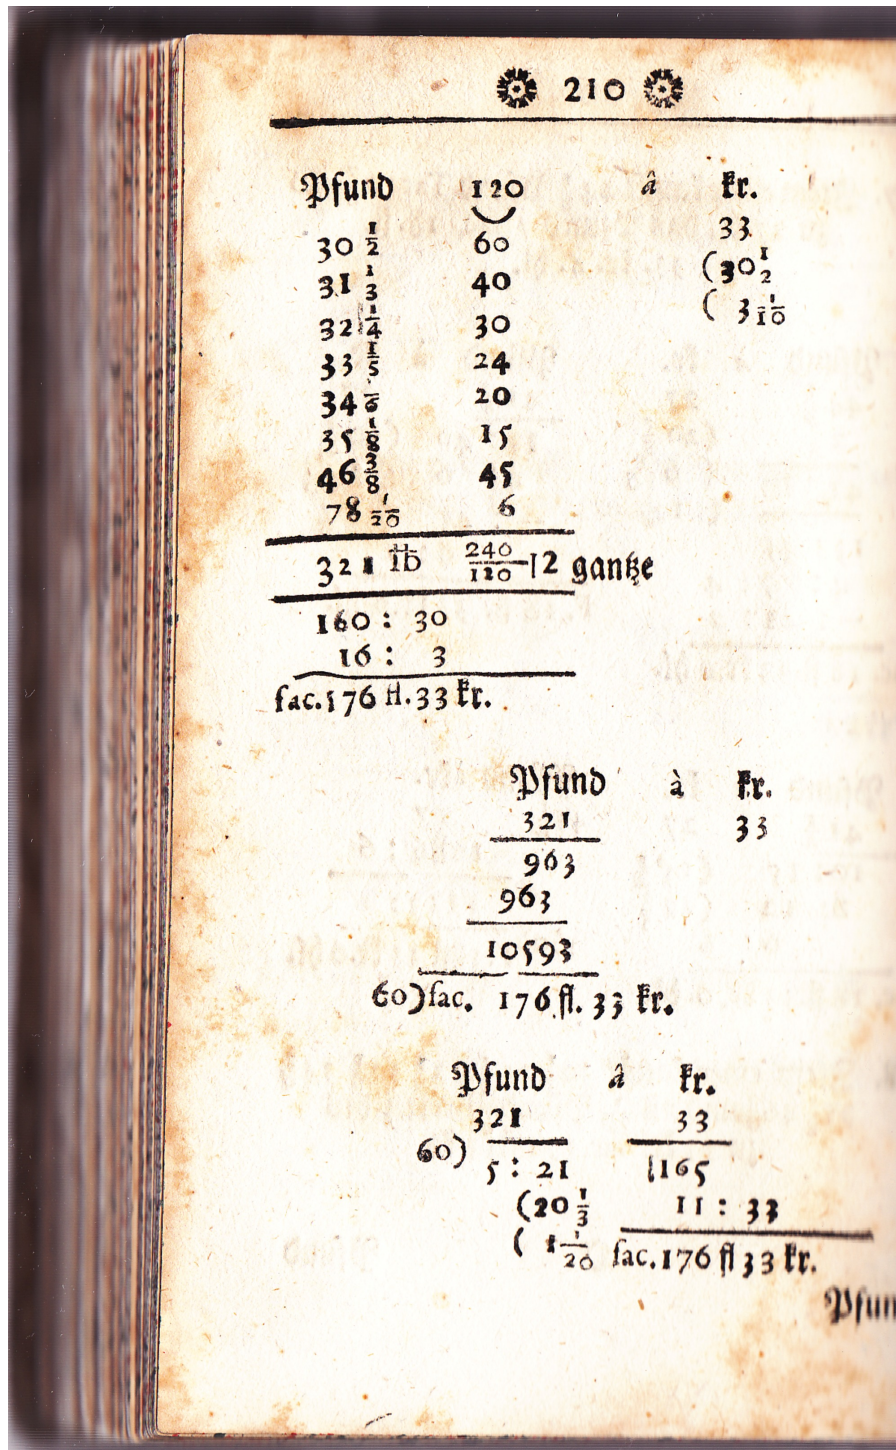 210
Pfund 120 â kr.
30 1/2 60 33
31 1/3 40 (30 1/2
32 1/4 30 ( 3 1/10
33 1/5 24
34 1/6 20
35 1/8 15
46 3/8 45
78 1/20 6
321 ℔ 240/120 |2 gantze
160 : 30
16 : 3
fac. 176 fl. 33 kr.
Pfund à kr.
321 33
963
963
10593
60) fac. 176 fl. 33 kr.
Pfund â kr.
321 33
60)
5 : 21 |165
(20 1/3 11 : 33
( 1 1/20 fac. 176 fl 33 kr.
Pfun